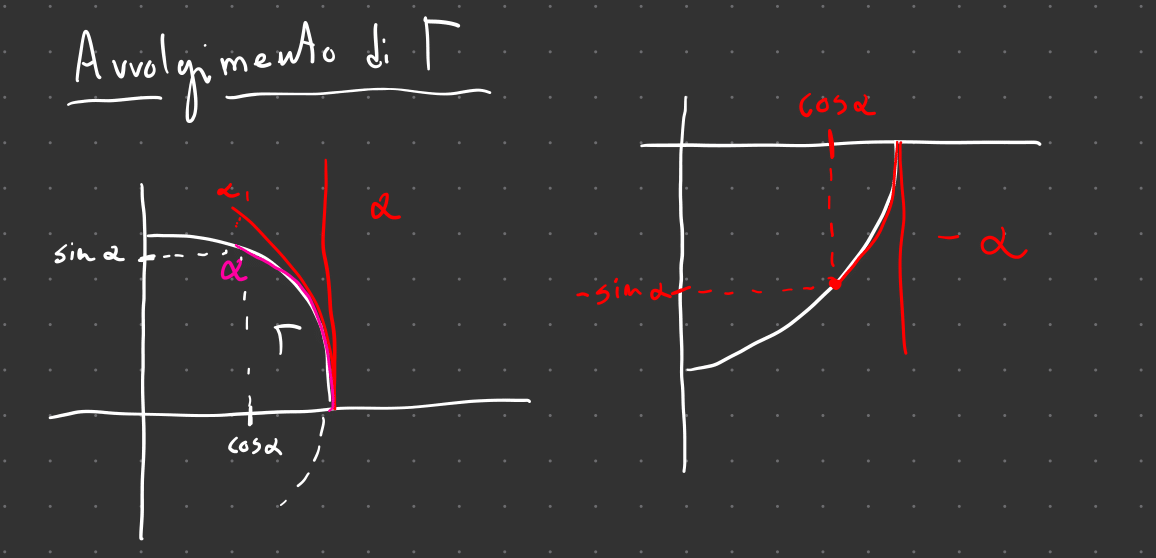 Avvolgimento di Γ
α₁
α
sin α
α
Γ
cos α
cos α
- α
- sin α